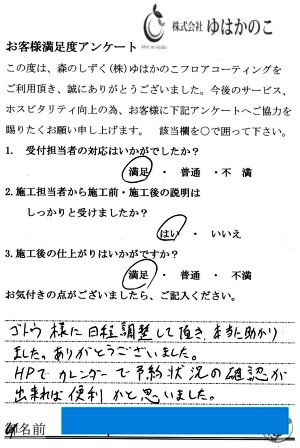 株式会社 ゆはかのこ
お客様満足度アンケート
この度は、森のしずく(株)ゆはかのこフロアコーティングを
ご利用頂き、誠にありがとうございました。今後のサービス、
ホスピタリティ向上の為、お客様に下記アンケートへご協力を
賜りたくお願い申し上げます。 該当欄を○で囲って下さい。
1. 受付担当者の対応はいかがでしたか?
満足 ・ 普通 ・ 不 満
2. 施工担当者から施工前・施工後の説明は
しっかりと受けましたか?
はい ・ いいえ
3. 施工後の仕上がりはいかがですか?
満足 ・ 普通 ・ 不満
お気付きの点がございましたら、ご記入ください。
ゴトウ様に日程調整して頂き、本当に助かり
ました。ありがとうございました。
HPでカレンダーで予約状況の確認が
出来れば便利かと思いました。
名前